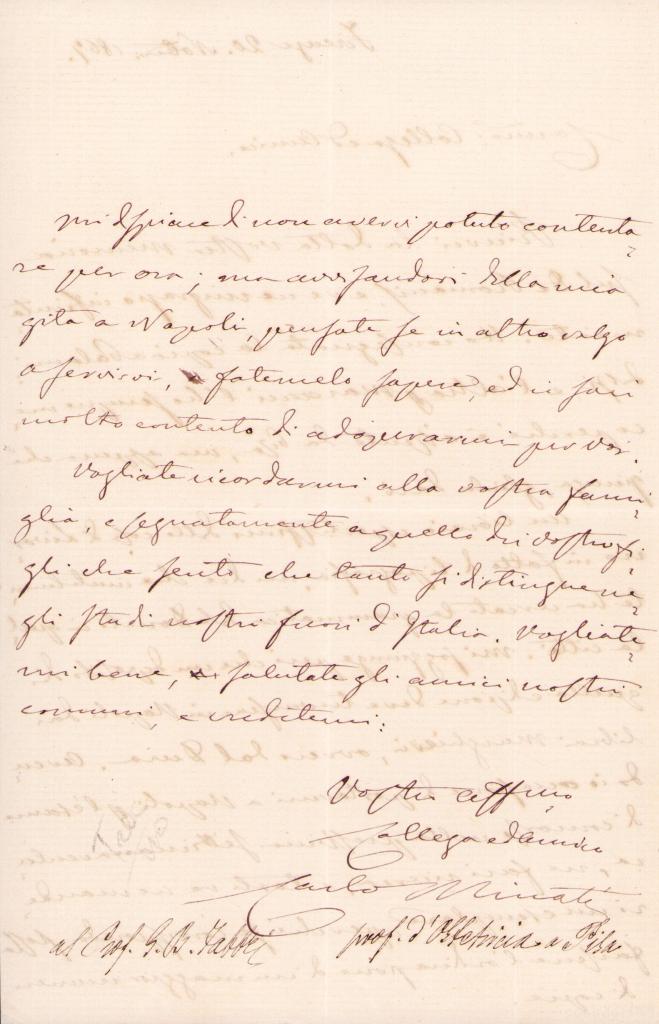 mi dispiace di non avervi potuto contenta-
re per ora; ma avvisandovi della mia
gita a Napoli, pensate se in altro valgo
a servirvi, fatemelo sapere, ed io sarò
molto contento di adoperarmi per voi.
Vogliate ricordarmi alla vostra fami-
glia, e segnatamente a quello dei vostri fi-
gli che sento che tanto si distingue ne-
gli studi nostri fuori d'Italia. Vogliate-
mi bene, salutate gli amici nostri
comuni, e creditemi:
Vostro affmo
Collega ed amico
Carlo Minati
al Prof. G. B.
prof. d'Ostetricia a Pisa